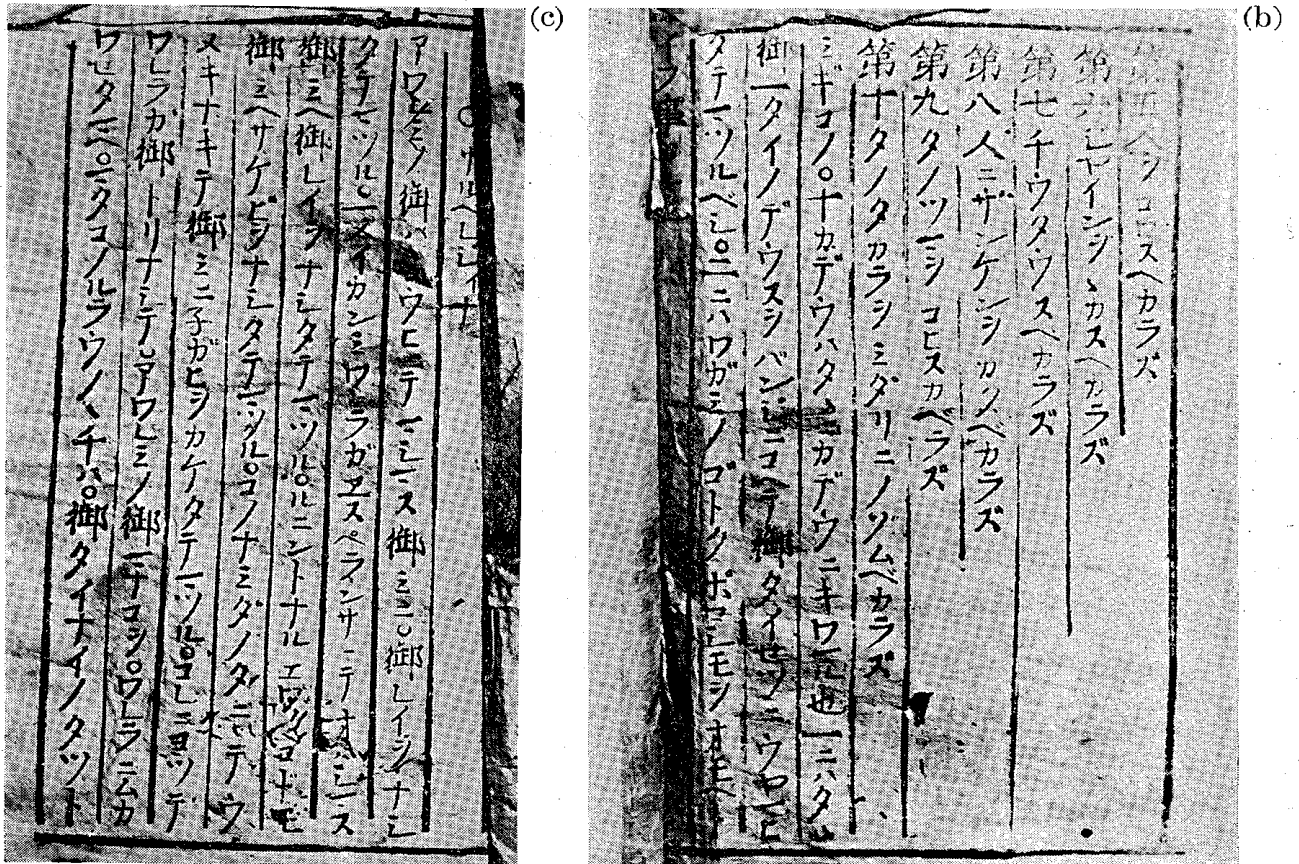 (b)
第五人ヲコロスヘカラズ
第六ジヤインヲヽカスヘカラズ
第七チウタウスベカラズ
第八人ニザンゲンヲカクベカラズ
第九タノツマヲコヒスカベラズ
第十タノタカラヲミダリニノゾムベカラズ
ミギコノ〇十カデウハタヽ二カデウニキワマル也一ニハタヽ
御一タイノデウスヲバンジニコヘテ御タイセツニウヤマヒ
タテマツルベシ〇二ニハワガミノゴトクポロシモヲオモヘ
イフ事也
(c)
〇サルベレジイナ
アワレミノ御ハヽ コウヒニテマシマス御ミニ〇御レイヲナシ
タテマツル〇 カンミワウラガエスペランサニテオハシマス
御ミヘ御レイヲナシタテマツル〇ルニントナルエワノコドモ
御ミヘサケビヲナシタテマツル〇コノナミダノタニニテウ
メキナキテ御ミニ子ガヒヲカケタテマツル〇コレニヨツテ
ワレラガ御トリナシテ〇アワレミノ御マナコヲ〇ワレラニムカ
ワセタマヘ〇マタコノルラウノヽチハ〇御タイナイノタツト